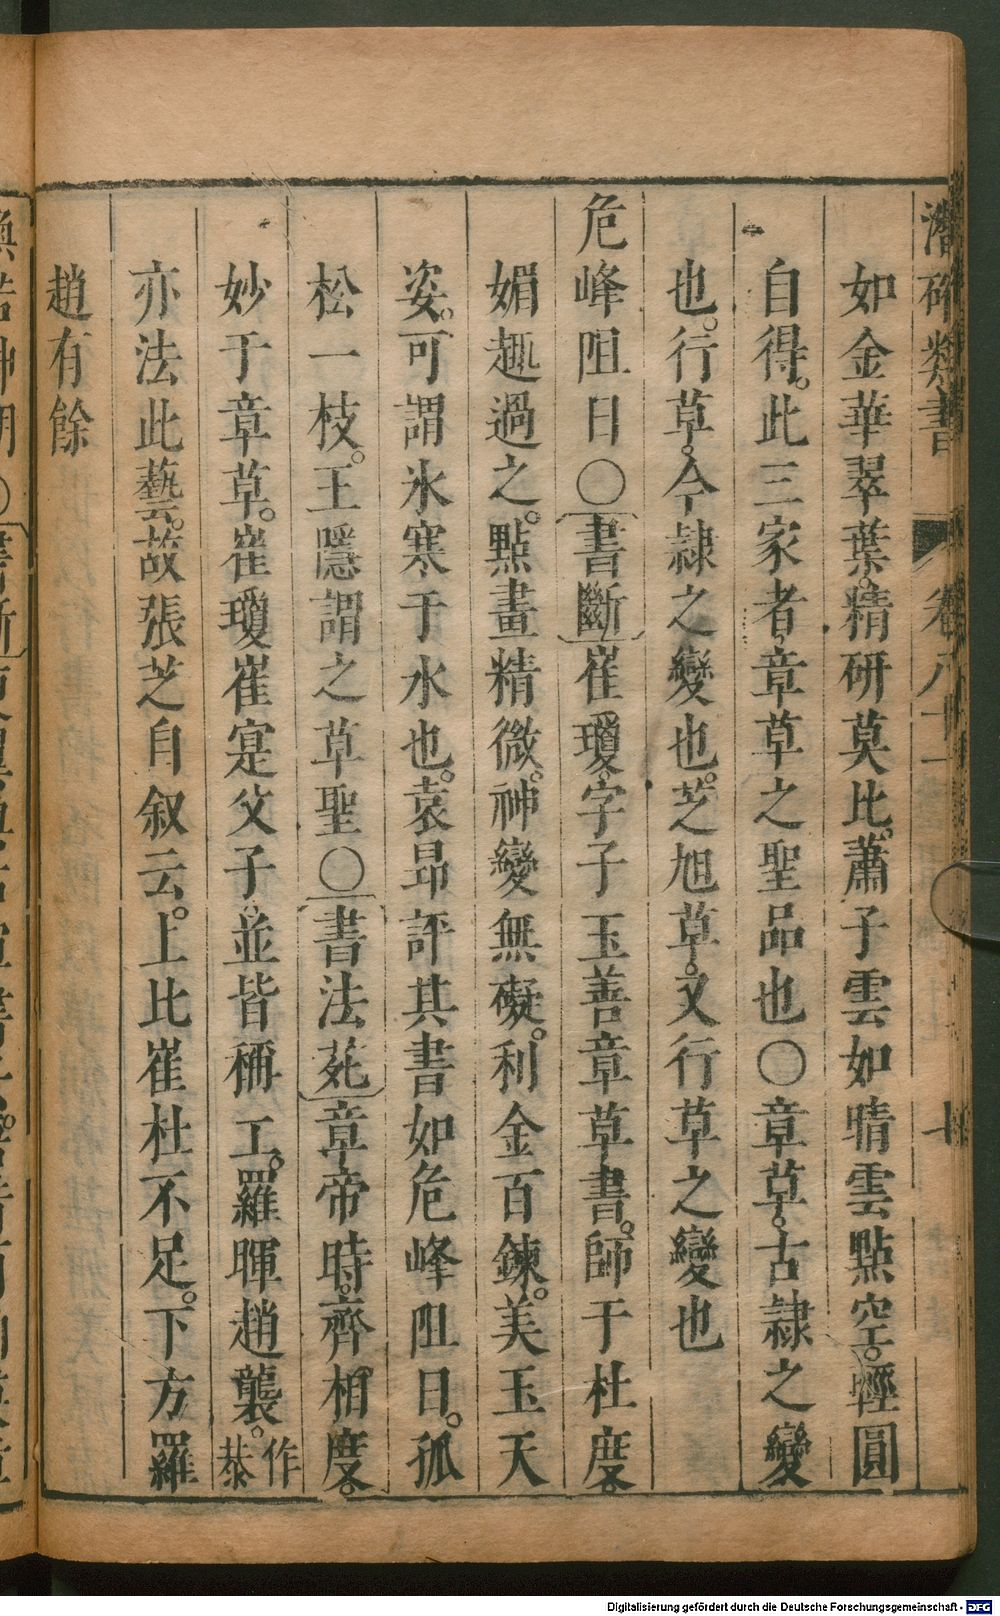 潛確類書 卷八十一
如金華翠葉。精研莫比。蕭子雲如晴雲點空。輕圓
自得。此三家者。章草之聖品也○章草。古隷之變
也。行草。今隷之變也。芝旭草。又行草之變也
危峰阻日○書斷崔瓊。字子玉善章草書。師于杜度。
媚趣過之。點畫精微。神變無礙。利金百鍊。美玉天
姿。可謂氷寒于水也。袁昂評其書如危峰阻日。孤
松一枝。王隱謂之草聖○書法苑章帝時。齊相度。
妙于章草。崔瓊崔寔父子。並皆稱工。羅暉趙襲。作恭
亦法此藝。故張芝自叙云。上比崔杜不足。下方羅
趙有餘
Digitalisierung gefördert durch die Deutsche Forschungsgemeinschaft - DFG